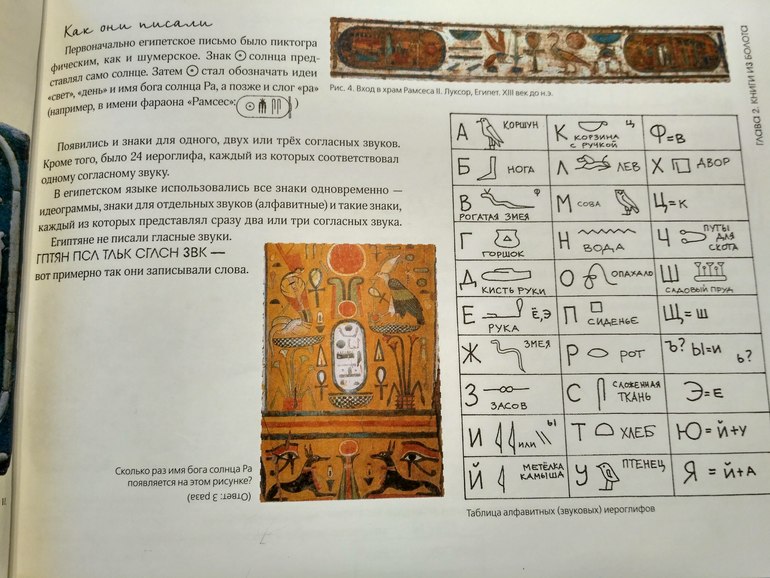 Как они писали
Первоначально египетское письмо было пиктогра
фическим, как и шумерское. Знак солнца пред-
ставлял само солнце. Затем стал обозначать идеи
«свет», «день» и имя бога солнца Ра, а позже и слог «ра»
(например, в имени фараона «Рамсес»: )
Появились и знаки для одного, двух или трёх согласных звуков.
Кроме того, было 24 иероглифа, каждый из которых соответствовал
одному согласному звуку.
В египетском языке использовались все знаки одновременно —
идеограммы, знаки для отдельных звуков (алфавитные) и такие знаки,
каждый из которых представлял сразу два или три согласных звука.
Египтяне не писали гласные звуки.
ГПТЯН ПСЛ ТЛЬК СГЛСН ЗВК —
вот примерно так они записывали слова.
Сколько раз имя бога солнца Ра
появляется на этом рисунке?
(Ответ: 3 раза)
Рис. 4. Вход в храм Рамсеса II. Луксор, Египет. XIII век до н.э.
А КОРШУН К Ц КОРЗИНА С РУЧКОЙ Ф=В
Б НОГА Л ЛЕВ Х ДВОР
В Ф РОГАТАЯ ЗМЕЯ М СОВА Ц=К
Г ГОРШОК Н ВОДА Ч ПУТЫ ДЛЯ СКОТА
Д КИСТЬ РУКИ О ОПАХАЛО Ш САДОВЫЙ ПРУД
Е Ё,Э РУКА П СИДЕНЬЕ Щ=Ш
Ж ЗМЕЯ Р РОТ Ъ? Ы=И Ь?
З ЗАСОВ С СЛОЖЕННАЯ ТКАНЬ Э=Е
И ИЛИ Ы Т ХЛЕБ Ю=Й+У
Й МЕТЁЛКА КАМЫША У ПТЕНЕЦ Я=Й+А
Таблица алфавитных (звуковых) иероглифов
ГЛАВА 2. КНИГИ ИЗ БОЛОТА